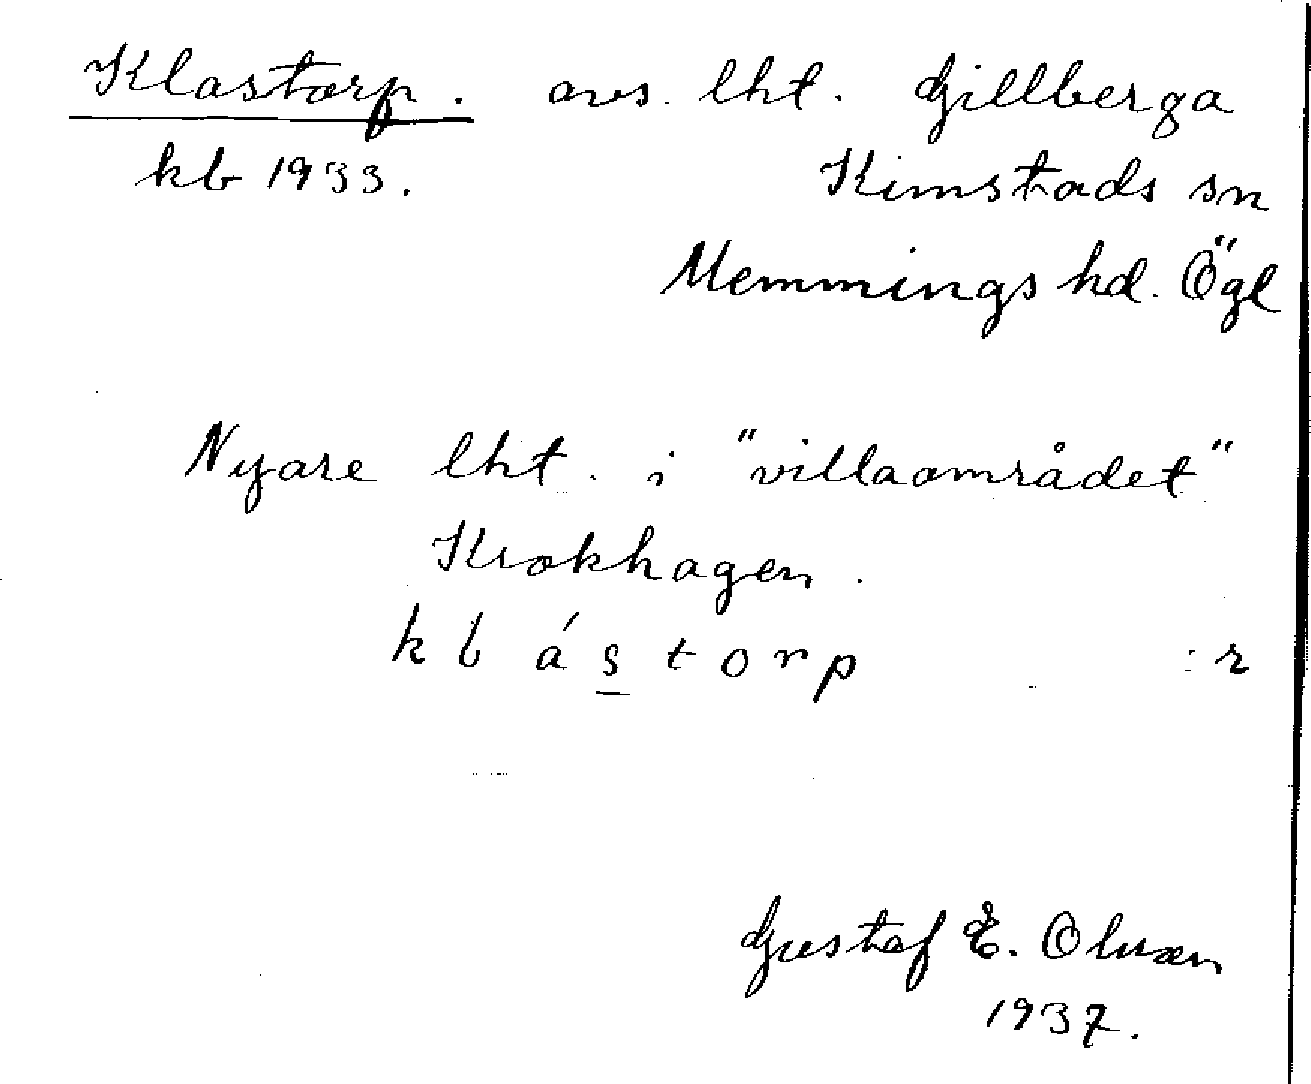 Klastorp. avs. lht. Gillberga
kb 1933. Kimstads sn
Memmings hd. Ögl
Nyare lht. i "villaområdet"
Krokhagen.
k b á s t o r p :r
Gustaf E.
1937.